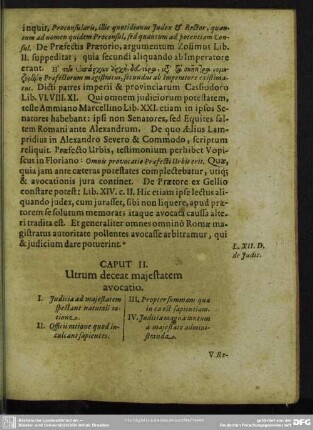 inquit, Proconsularis, illic quotidianus Judex & Rector, quantum ad nomen quidem Proconsul, sed quantum ad potestatem Consul.
De Præfectis Prætorio, argumentum Zosimus Lib.
II. suppeditat, quia secundi aliquando ab Imperatore
erant.
Præfectorum magistratus, secundus ab Imperatore existimatur.
Dicti patres imperii & provinciarum Cassiodoro
Lib. VI. VIII. XI. Qui omnem judiciorum potestatem,
teste Ammiano Marcellino Lib. XXI. etiam in ipsos Senatores
habebant: ipsi non Senatores, sed Equites saltem
Romani ante Alexandrum. De quo Ælius Lampridius
in Alexandro Severo & Commodo, scriptum
reliquit. Præfecto Urbis, testimonium perhibet Vopiscus
in Floriano: Omnis provocatio Præfecti Urbis erit. Quæ,
quia jam ante cæteras potestates complectebatur, utique
& avocationis jura continet. De Prætore ex Gellio
constare potest: Lib. XIV. c. II. Hic etiam ipse lectus aliquando
judex, cum jurasset, sibi non liquere, apud prætorem
se solutum memorat: itaque avocata caussa alteri
tradita est. Et generaliter omnes omnino Romæ magistratus
autoritate pollentes avocasse arbitramur, qui
& judicium dare potuerint.*
L. XII. D.
de Judic.
CAPUT II.
Utrum deceat majestatem
avocatio.
I. Judicia ad majestatem
spectant naturali ratione.
II. Officii mtione quod inculcant
sapientes.
III. Propter summam quæ
in ea est sapientiam.
IV. Judicia magna utrum
a majestate administranda.
V. Re-